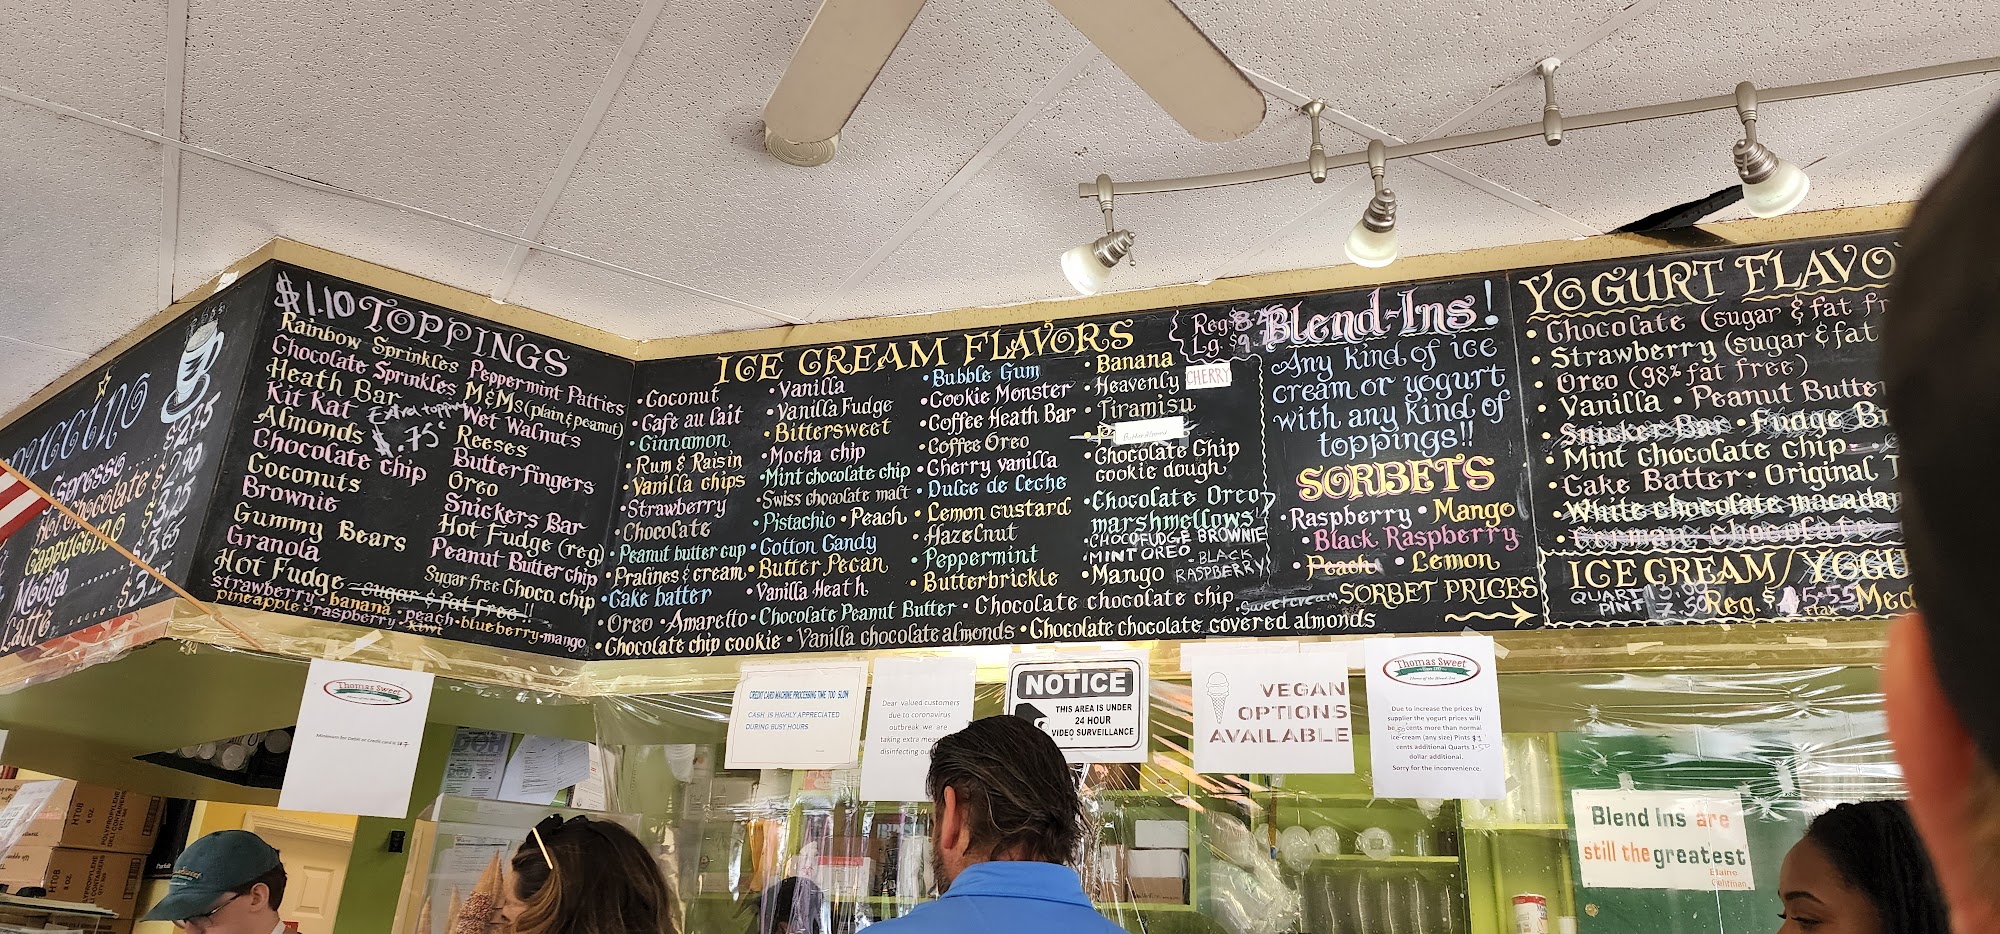 Espresso....$2.45
Hot Chocolate $2.90
Cappuccino $3.25
Mocha.......$3.65
Latte.....$3.25
$1.10 TOPPINGS
Rainbow Sprinkles
Chocolate Sprinkles
Heath Bar
Kit Kat
Extra topping
$.75
Almonds
Chocolate chip
Coconuts
Brownie
Gummy Bears
Granola
Hot Fudge sugar & fat free!!
Peppermint Patties
M&Ms (plain & peanut)
Wet Walnuts
Reeses
Butterfingers
Oreo
Snickers Bar
Hot Fudge (reg)
Peanut Butter chip
Sugar free Choco. chip
strawberry • banana • peach • blueberry • mango
pineapple • raspberry kiwi
ICE CREAM FLAVORS
• Coconut
• Cafe au lait
• Cinnamon
• Rum & Raisin
• Vanilla chips
• Strawberry
• Chocolate
• Peanut butter cup
• Pralines & cream
• Cake batter
• Vanilla
• Vanilla Fudge
• Bittersweet
• Mocha chip
• Mint chocolate chip
• Swiss chocolate malt
• Pistachio • Peach
• Cotton Candy
• Butter Pecan
• Vanilla Heath
• Bubble Gum
• Cookie Monster
• Coffee Heath Bar
• Coffee Oreo
• Cherry vanilla
• Dulce de Leche
• Lemon custard
• Hazelnut
• Peppermint
• Butterbrickle
• Banana
• Heavenly CHERRY
• Tiramisu
• Chocolate Chip
cookie dough
• Chocolate Oreo
marshmellows
• CHOCOFUDGE BROWNIE
• MINT OREO
• Mango
• BLACK
RASPBERRY
• Oreo • Amaretto • Chocolate Peanut Butter • Chocolate chocolate chip • sweetcream
• Chocolate chip cookie • Vanilla chocolate almonds • Chocolate chocolate covered almonds
Reg.
Lg.
Blend-Ins!
Any kind of ice
cream or yogurt
with any kind of
toppings!!
SORBETS
• Raspberry • Mango
• Black Raspberry
• Peach • Lemon
SORBET PRICES
YOGURT
• Chocolate (sugar & fat
• Strawberry (sugar & fat
• Oreo (98% fat free)
• Vanilla • Peanut
• Snicker Bar • Fudge
• Mint chocolate chip
• Cake Batter • Original
• White chocolate
• German chocolate
ICE CREAM/
QUART
PINT 7.50 Reg. $5.55
+tax
Thomas Sweet
CREDIT CARD MACHINE PROCESSING TIME TOO SLOW
CASH IS HIGHLY APPRECIATED
DURING BUSY HOURS
Dear valued customers
due to coronavirus
outbreak we are
taking extra
disinfecting
NOTICE
THIS AREA IS UNDER
24 HOUR
VIDEO SURVEILLANCE
VEGAN
OPTIONS
AVAILABLE
Thomas Sweet
Due to increase the prices by
supplier the yogurt prices will
be cents more than normal
ice-cream (any size) Pints $1
cents additional Quarts 1.50
dollar additional.
Sorry for the inconvenience.
"Blend Ins are
still the greatest"
Elaine
HT08
8 OZ.
HT08
8 OZ.